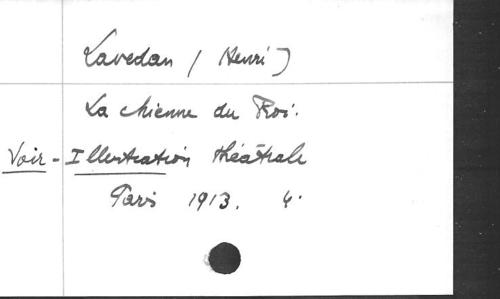 Lavedan (Henri)
La chienne du Roi.
Voir - Illustration théâtrale
Paris 1913. 4.